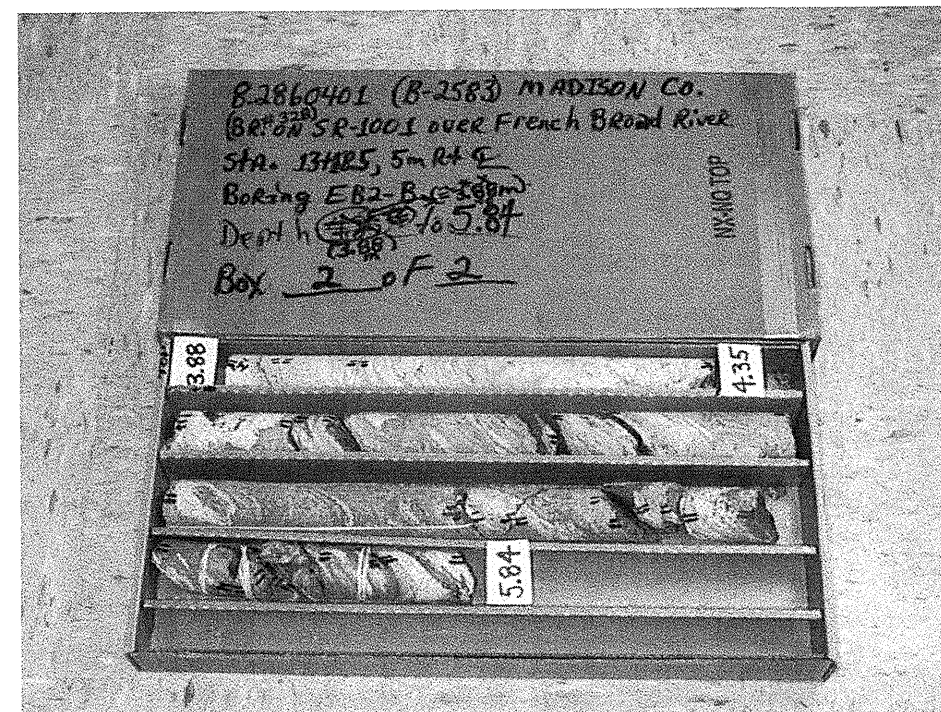 8.2860401 (B-2583) MADISON CO.
(BR#328) ON SR-1001 over French Broad River
Sta. 5m Rt ℄
Boring EB2-B
Depth (3.88) to 5.84
Box 2 of 2
NX-NO TOP
3.88
4.35
5.84